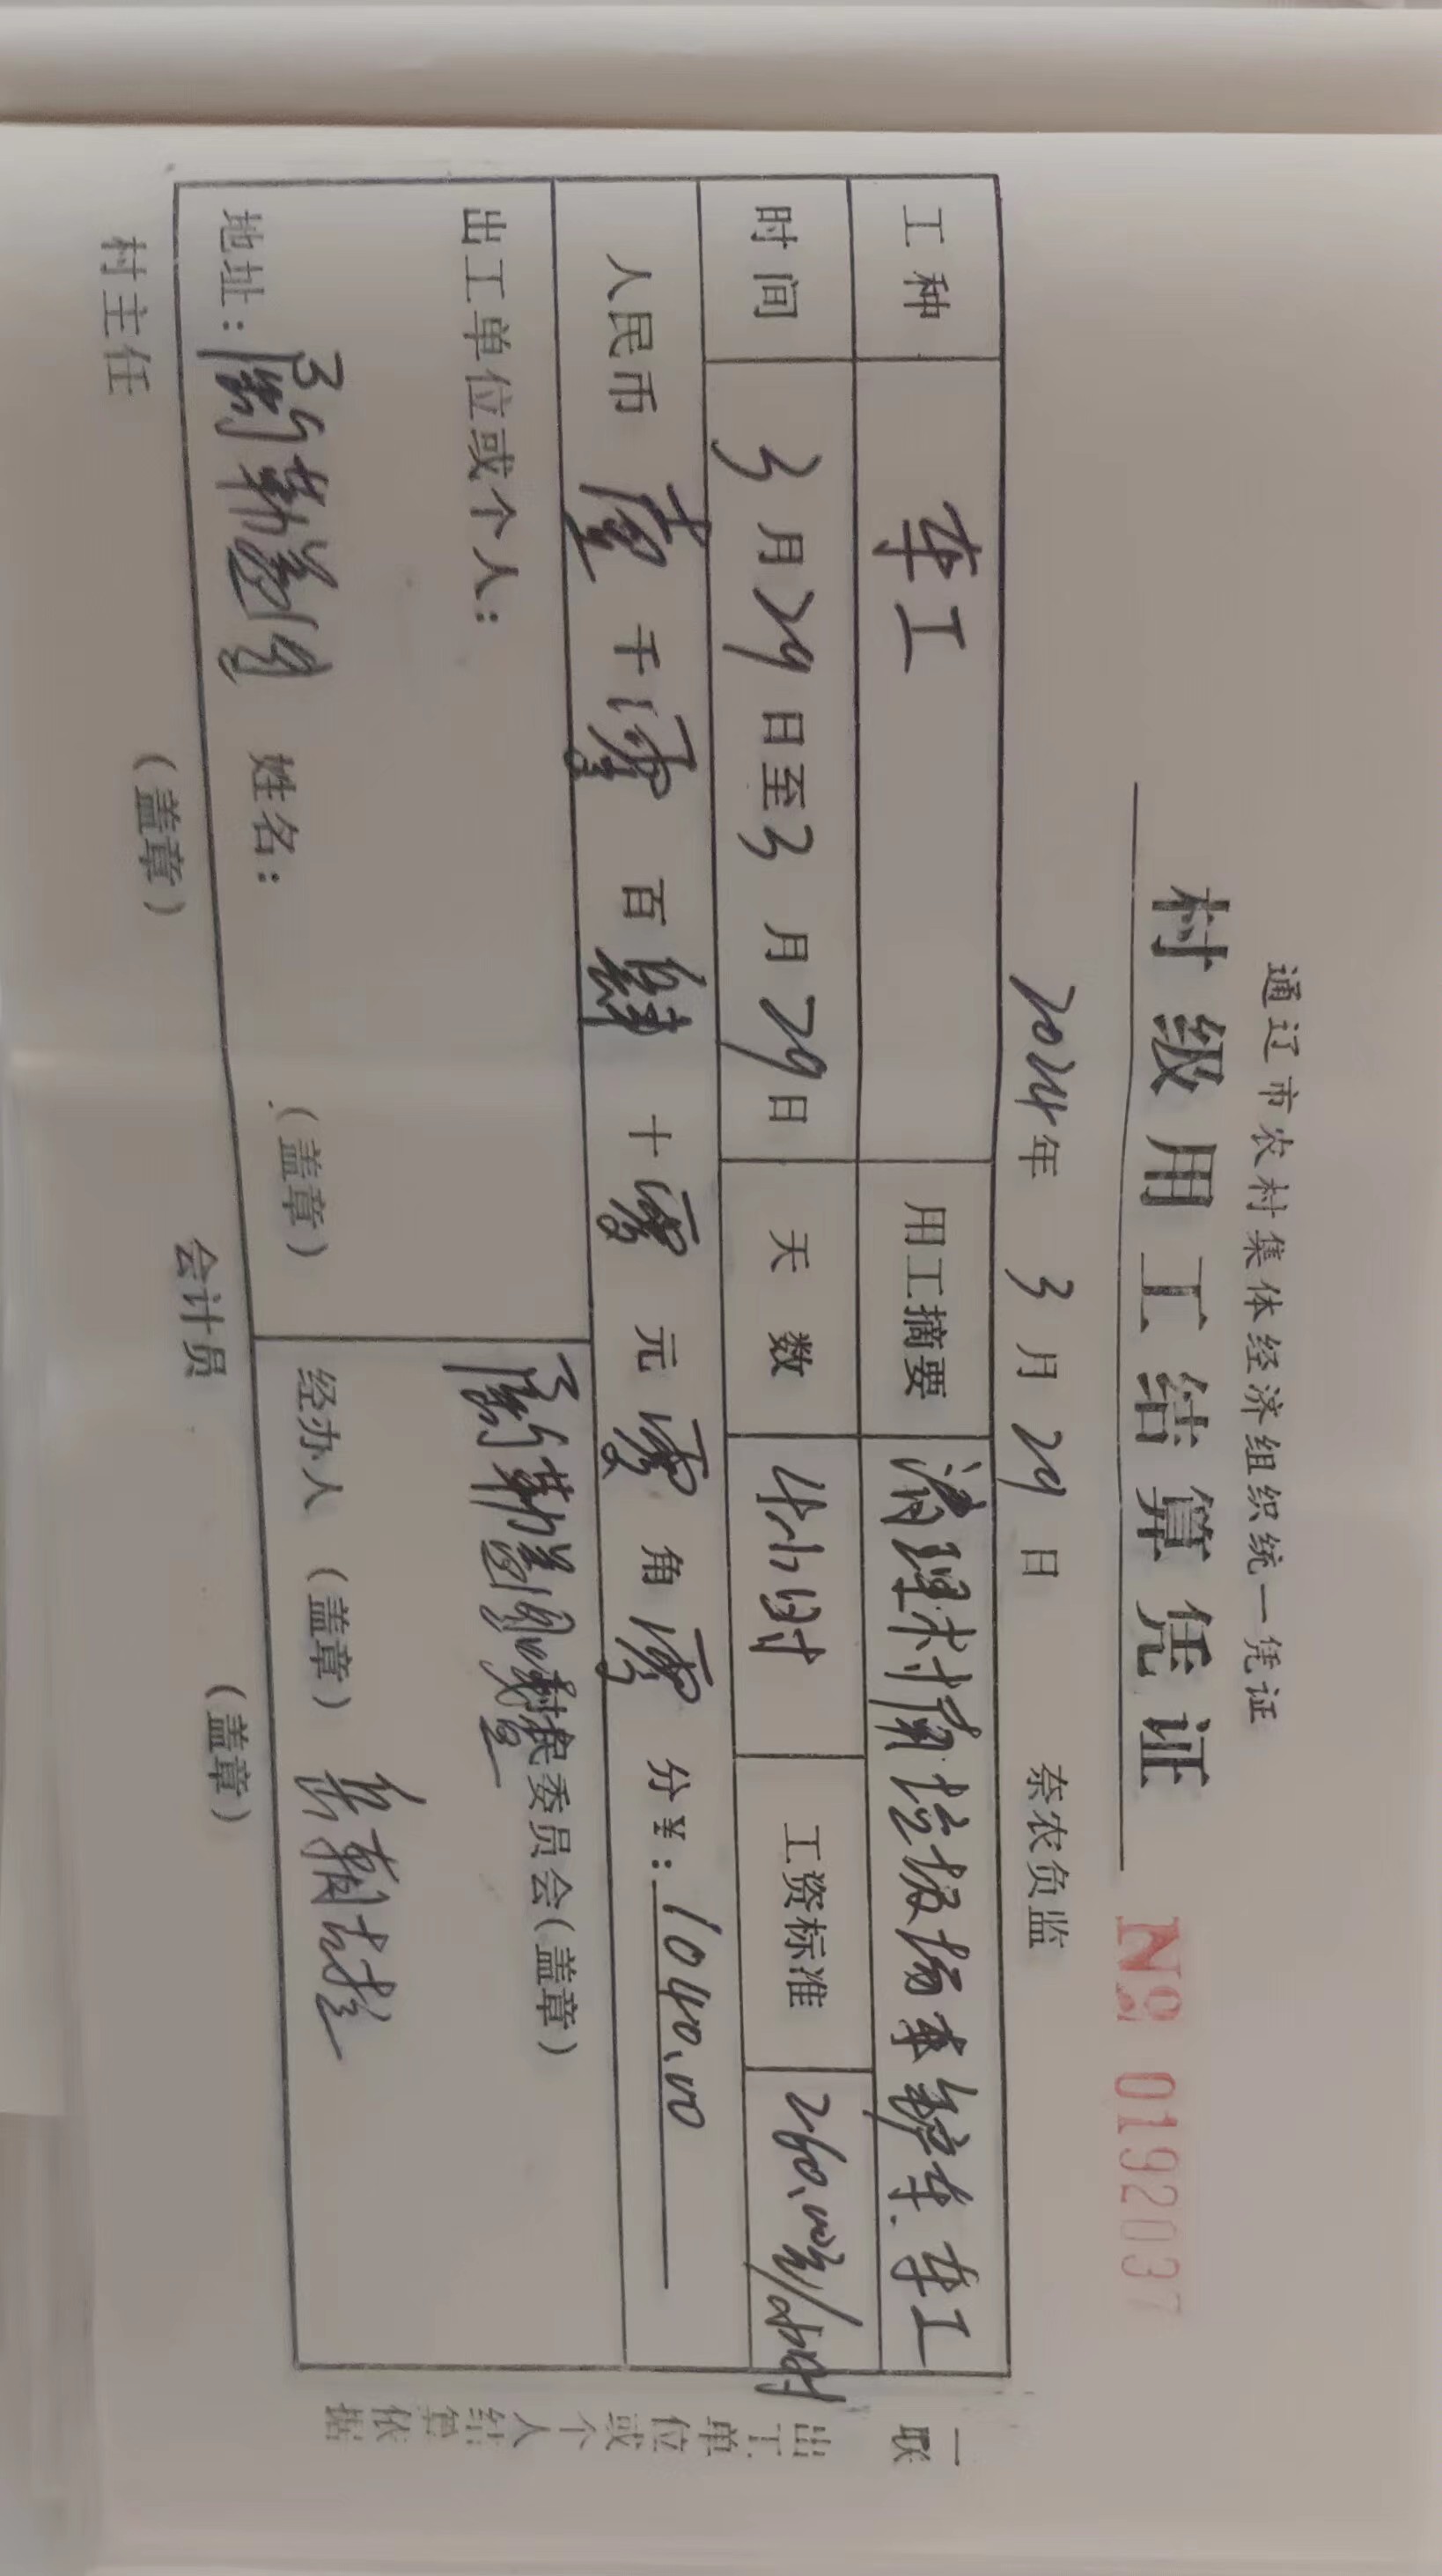 通辽市农村集体经济组织统一凭证
村级用工结算凭证 № 0192037
2024年 3月29日 奈农负监
工种 车工 用工摘要 清理村前垃圾场车 车工
时间 3月29日至3月29日 天数 4小时 工资标准 260.00元/小时
人民币 壹千零百肆十零元零角零分 ¥:1040.00
出工单位或个人: 村民委员会(盖章)
地址: 姓名: (盖章) 经办人 (盖章)
村主任 (盖章) 会计员 (盖章)
一联 出工单位或个人结算依据